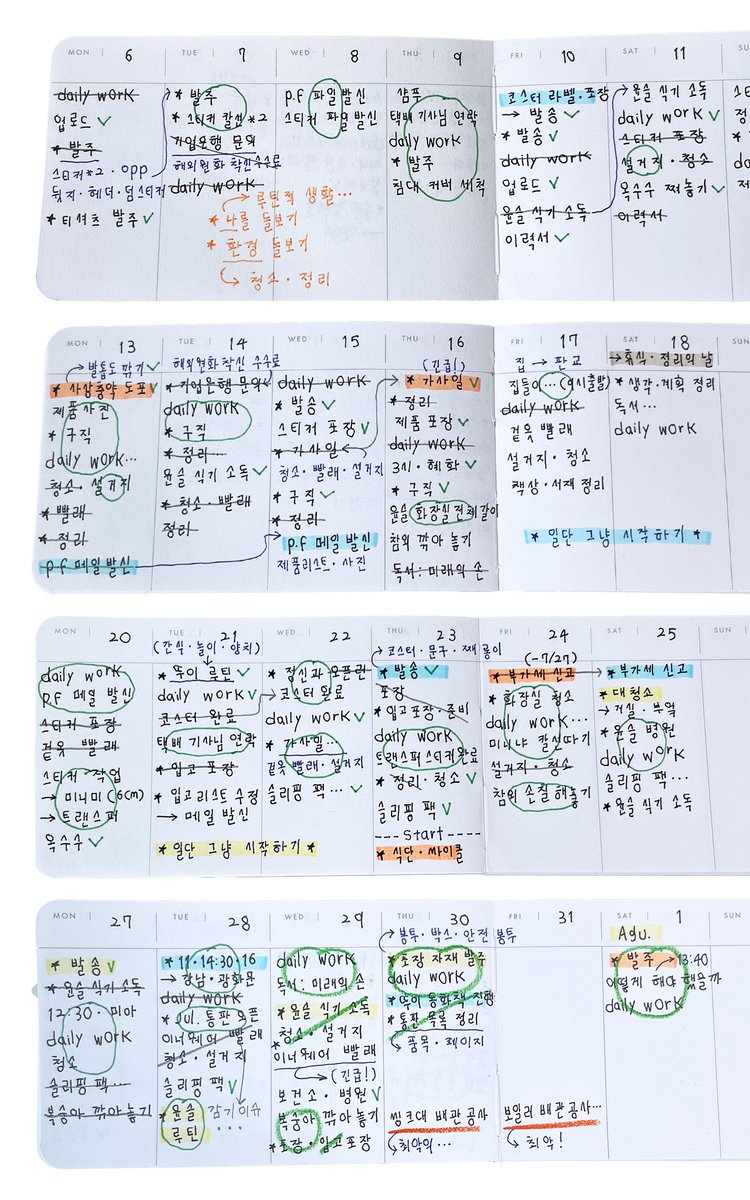 MON 6
daily work
업로드 ✓
* 발주
스티커*2 · OPP
뒷지 · 헤더 · 덤스티커
* 티셔츠 발주 ✓
TUE 7
* 발주
* 스티커 칼선 *2
기업은행 문의
해외원화 착신수수료
daily work
→ 루틴적 생활...
* 나를 돌보기
* 환경 돌보기
→ 청소 · 정리
WED 8
p.f 파일 발신
스티커 파일 발신
THU 9
샴푸
택배 기사님 연락
daily work
* 발주
침대 커버 세척
FRI 10
코스터 라벨 · 포장
→ 발송 ✓
* 발송 ✓
daily work
업로드 ✓
윤슬 식기 소독
이력서 ✓
SAT 11
윤슬 식기 소독
daily work ✓
스티커 포장
설거지 · 청소
옥수수 쪄놓기 ✓
이력서
MON 13
→ 발톱도 깎기 ✓
* 사상충약 도포 ✓
제품사진
* 구직
daily work...
청소 · 설거지
* 빨래
* 정리
p.f 메일 발신
TUE 14
해외원화 착신 수수료
* 기업은행 문의
daily work
* 구직
* 정리
윤슬 식기 소독 ✓
* 청소 · 빨래
정리
WED 15
daily work
* 발송 ✓
스티커 포장 ✓
* 가사일
청소 · 빨래 · 설거지
* 구직 ✓
* 정리
p.f 메일 발신
제품리스트 · 사진
THU 16
(긴급!)
* 가사일 ✓
* 정리
제품 포장 ✓
daily work
3시 · 혜화 ✓
* 구직 ✓
윤슬 화장실 전체갈이
참외 깎아 놓기
독서 : 미래의 손
FRI 17
집 → 판교
집들이... (9시출발)
daily work
겉옷 빨래
설거지 · 청소
책상 · 서재 정리
SAT 18
→ 휴식 · 정리의 날
* 생각 · 계획 정리
독서...
daily work
* 일단 그냥 시작하기 *
MON 20
daily work
p.f 메일 발신
스티커 포장
겉옷 빨래
스티커 작업
→ 미니미 (6cm)
→ 트랜스퍼
옥수수 ✓
TUE 21
(간식 · 놀이 · 양치)
* 뚜이 루틴 ✓
daily work ✓
코스터 완료
택배 기사님 연락
* 입고 포장
* 입고리스트 수정
→ 메일 발신
* 일단 그냥 시작하기 *
WED 22
* 정신과 오픈런
코스터 완료
daily work ✓
* 가사일...
겉옷 빨래 · 설거지
슬리핑 팩... ✓
THU 23
→ 코스터 · 문구 · 찌룽이
* 발송 ✓
포장
* 입고포장 · 준비
daily work
트랜스퍼스티커완료
* 정리 · 청소 ✓
슬리핑 팩 ✓
--- Start ----
* 식단 · 싸이클
FRI 24
(-7/27)
* 부가세 신고
* 화장실 청소
daily work...
미니냐 칼선따기
설거지 · 청소
참외 손질 해놓기
SAT 25
* 부가세 신고
* 대청소
→ 거실 · 부엌
* 윤슬 병원
daily work
슬리핑 팩...
* 윤슬 식기 소독
SUN
MON 27
* 발송 ✓
* 윤슬 식기 소독
12:30 · 미아
daily work
청소
슬리핑 팩...
복숭아 깎아 놓기
TUE 28
* 11 · 14:30 · 16
→ 강남 · 광화문
daily work
* Jul. 통판 오픈
이너웨어 빨래
청소 · 설거지
슬리핑 팩 ✓
* 윤슬 감기이슈
루틴 ...
WED 29
daily work
독서 : 미래의 손
* 윤슬 식기 소독
청소 · 설거지
* 이너웨어 빨래
→ (긴급!)
보건소 · 병원 ✓
복숭아 깎아 놓기
* 포장 · 입고포장
THU 30
→ 봉투 · 박스 · 안전 봉투
* 포장 자재 발주
daily work
* 뚜이 동화책 진행
* 통판 목록 정리
→ 품목 · 페이지
씽크대 배관 공사
→ 최악의...
FRI 31
보일러 배관공사...
→ 최악!
SAT 1
Agu.
* 발주 → 13:40
어떻게 해야 했을까
daily work
SUN